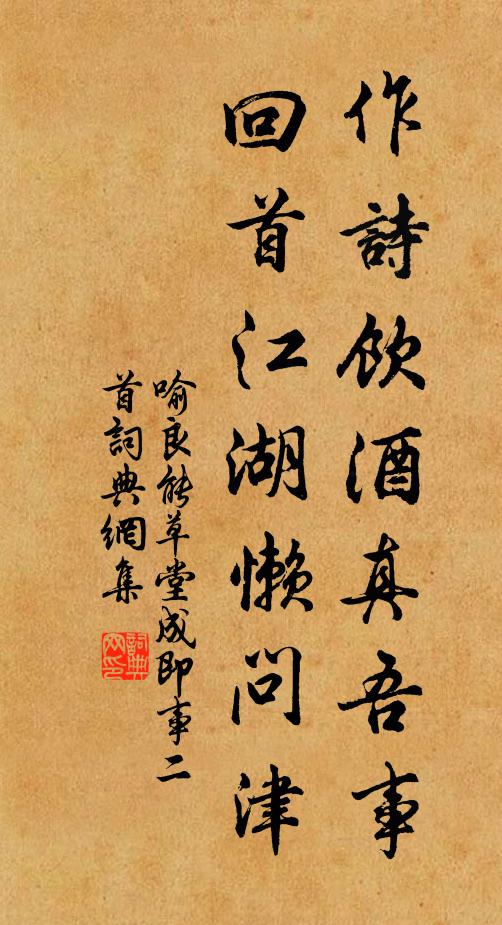 作詩飲酒真吾事
回首江湖懶問津
喻良能草堂成即事二
首詞典網集
詞典
网印